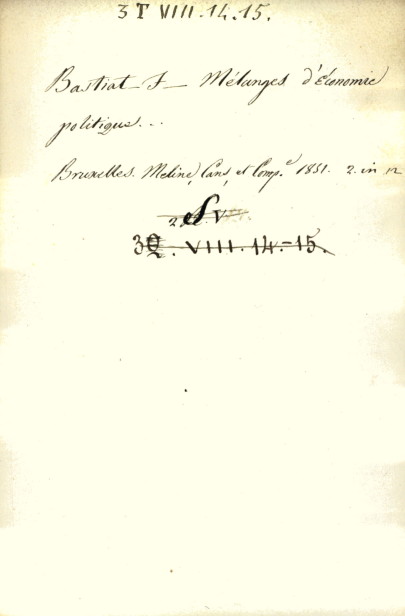 3 T VIII. 14. 15.
Bastiat - F - Mélanges d'économie
politique...
Bruxelles. Meline, Cans, et Comp.e 1851. 2. in 12
3Q. VIII. 14.-15.